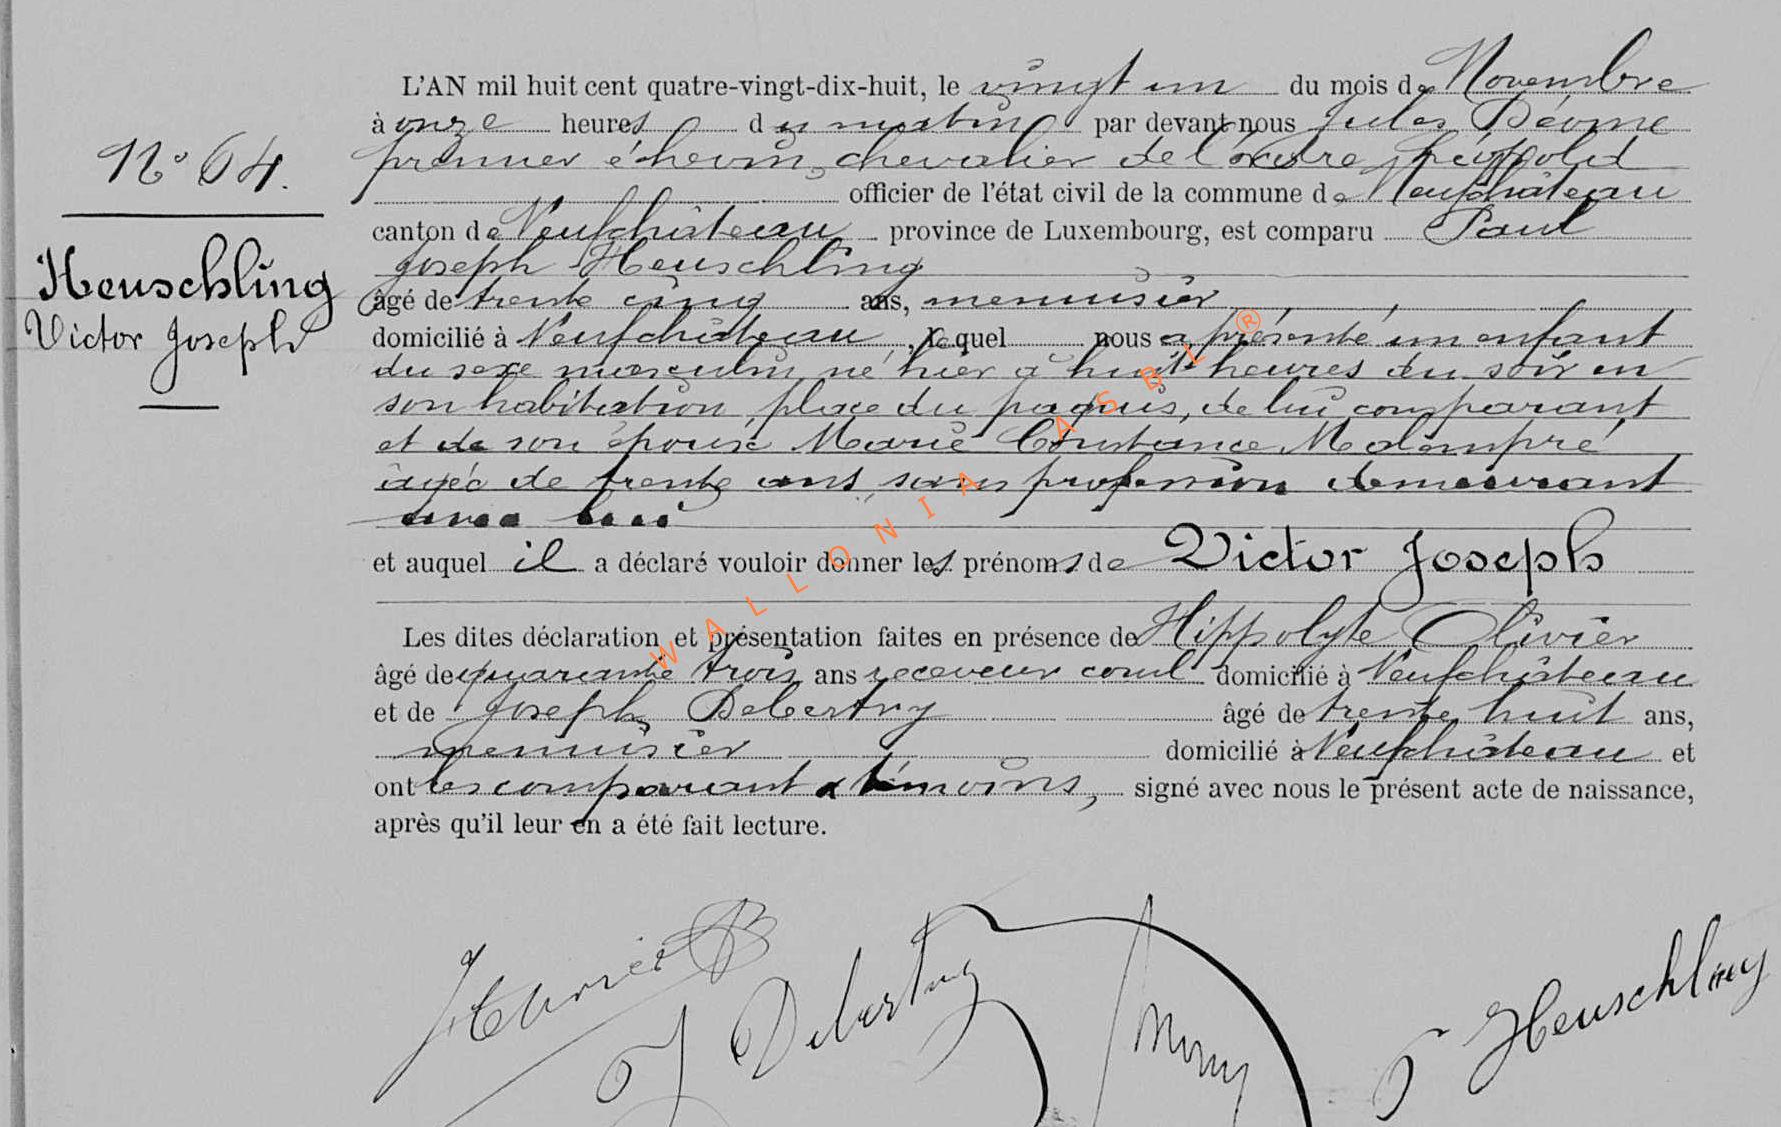 L'AN mil huit cent quatre-vingt-dix-huit, le vingt un du mois de Novembre
à onze heures du matin par devant nous Jules
premier échevin, chevalier de l'ordre Léopold
officier de l'état civil de la commune de Neufchâteau
canton de Neufchâteau province de Luxembourg, est comparu Paul
Joseph Heuschling
âgé de trente cinq ans, menuisier
domicilié à Neufchâteau, lequel nous a présenté un enfant
du sexe masculin né hier à huit heures du soir en
son habitation place du paquis, de lui comparant
et de son épouse Marie Constance Malempré
âgée de trente ans, sans profession demeurant
avec lui
et auquel il a déclaré vouloir donner les prénoms de Victor Joseph
Les dites déclaration et présentation faites en présence de Hippolyte Olivier
âgé de quarante trois ans receveur coml domicilié à Neufchâteau
et de Joseph Debertry âgé de trente huit ans,
menuisier domicilié à Neufchâteau et
ont les comparant & témoins, signé avec nous le présent acte de naissance,
après qu'il leur en a été fait lecture.
N° 64.
Heuschling
Victor Joseph
J Debertry
P Heuschling
WALLONIA ASBL ®